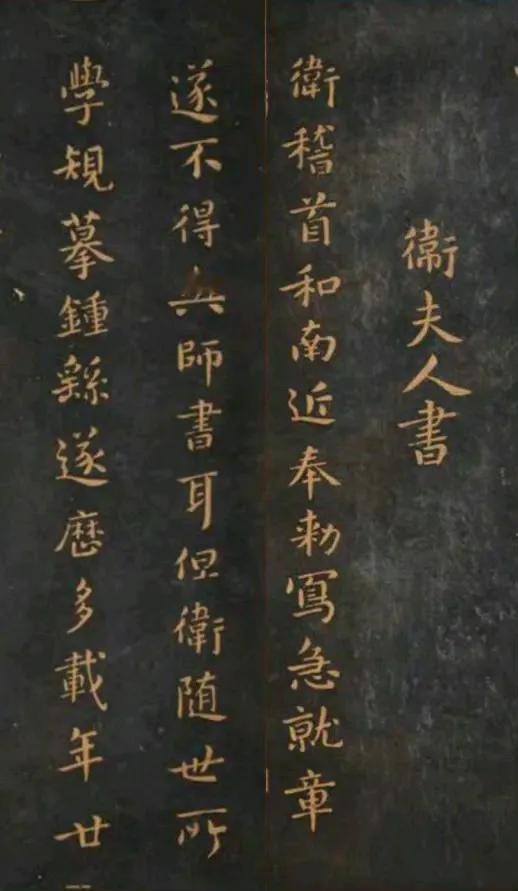 衛夫人書
衛稽首和南近奉勅寫急就章
遂不得與師書耳但衛随世所
學規摹鍾繇遂歷多載年廿